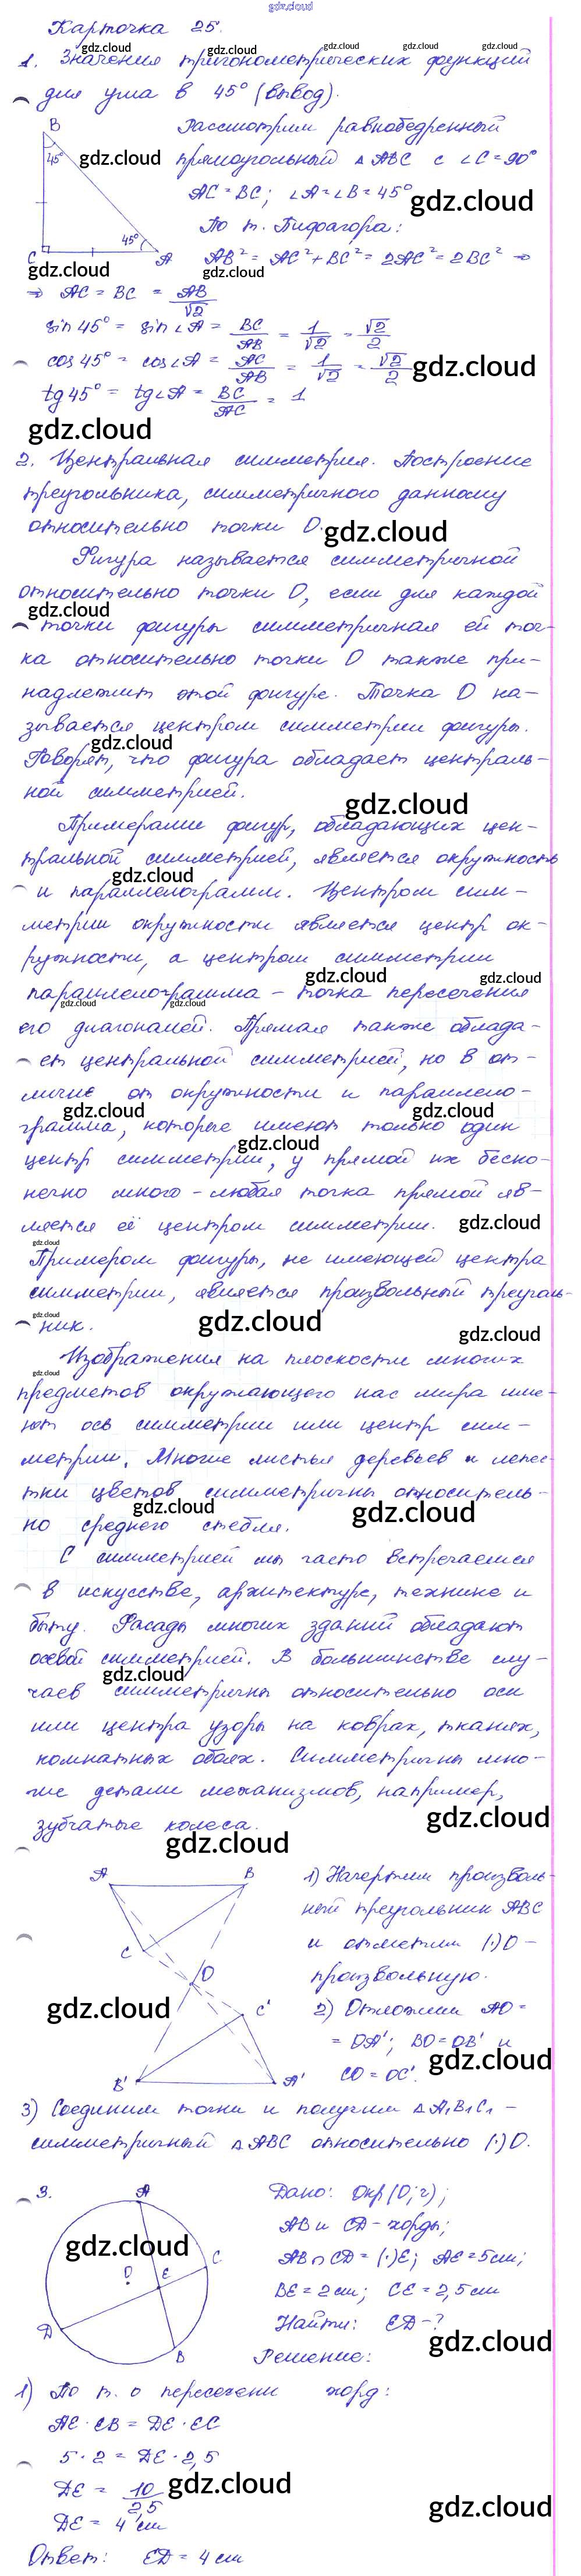 gdz.cloud
Карточка 25.
1. Значения тригонометрических функций
для угла в 45° (вывод).
Рассмотрим равнобедренный
прямоугольный △ ABC с ∠C = 90°
AC = BC; ∠A = ∠B = 45°
По т. Пифагора:
AB² = AC² + BC² = 2AC² = 2BC² ⇒
⇒ AC = BC = AB/√2
sin 45° = sin ∠A = BC/AB = 1/√2 = √2/2
cos 45° = cos ∠A = AC/AB = 1/√2 = √2/2
tg 45° = tg ∠A = BC/AC = 1
2. Центральная симметрия. Построение
треугольника, симметричного данному
относительно точки O.
Фигура называется симметричной
относительно точки O, если для каждой
точки фигуры симметричная ей точ-
ка относительно точки O также при-
надлежит этой фигуре. Точка O на-
зывается центром симметрии фигуры.
Говорят, что фигура обладает централь-
ной симметрией.
Примерами фигур, обладающих цен-
тральной симметрией, является окружность
и параллелограмм. Центром сим-
метрии окружности является центр ок-
ружности, а центром симметрии
параллелограмма - точка пересечения
его диагоналей. Прямая также облада-
ет центральной симметрией, но в от-
личие от окружности и параллело-
грамма, которые имеют только один
центр симметрии, у прямой их беско-
нечно много - любая точка прямой яв-
ляется её центром симметрии.
Примером фигуры, не имеющей центра
симметрии, является произвольный треуголь-
ник.
Изображения на плоскости многих
предметов окружающего нас мира име-
ют ось симметрии или центр сим-
метрии. Многие листья деревьев и лепес-
тки цветов симметричны относитель-
но среднего стебля.
С симметрией мы часто встречаемся
в искусстве, архитектуре, технике и
быту. Фасады многих зданий обладают
осевой симметрией. В большинстве слу-
чаев симметричны относительно оси
или центра узоры на коврах, тканях,
комнатных обоях. Симметричны мно-
гие детали механизмов, например,
зубчатые колеса.
1) Начертим произволь-
ный треугольник ABC
и отметим (·) O -
произвольную.
2) Отложим AO =
= OA'; BO = OB' и
CO = OC'.
3) Соединим точки и получим △ A₁B₁C₁ -
симметричный △ ABC относительно (·) O.
3. Дано: Окр (O; r);
AB и CD - хорды;
AB ∩ CD = (·) E; AE = 5 см;
BE = 2 см; CE = 2,5 см
Найти: ED - ?
Решение:
1) По т. о пересечени хорд:
AE · EB = DE · EC
5 · 2 = DE · 2,5
DE = 10/2,5
DE = 4 см
Ответ: ED = 4 см